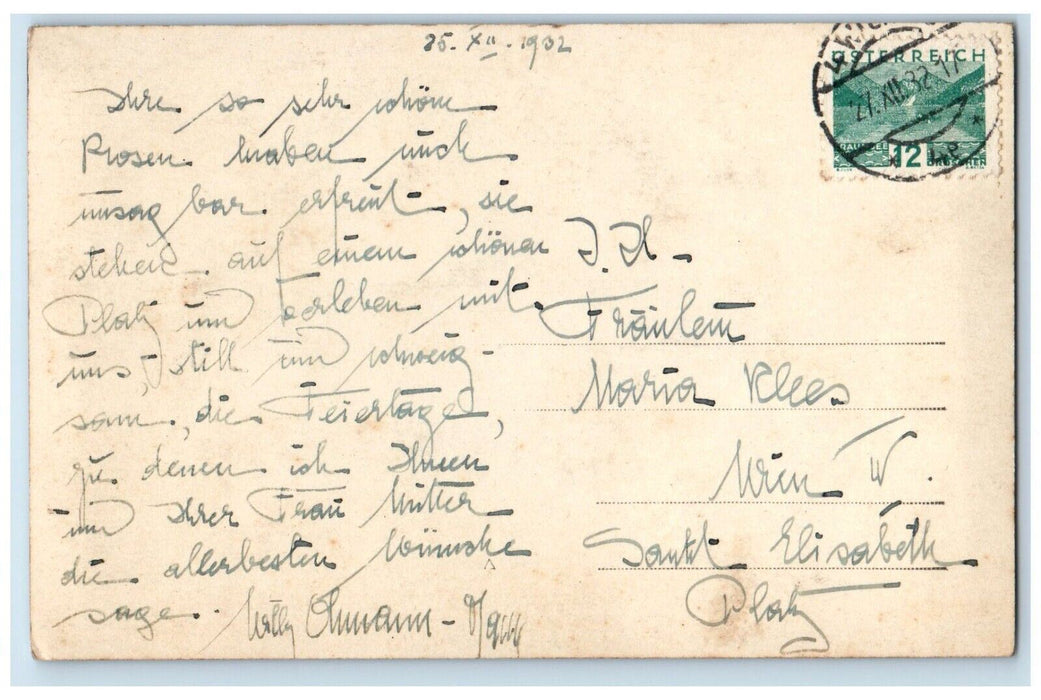 25. XII. 1932
Ihre so sehr schönen
Rosen haben mich
unsag bar erfreut, sie
stehen auf einem schönen
Platz und erleben mit
uns, still und schweig-
sam, die Feiertage,
zu denen ich Ihnen
und Ihrer Frau Mutter
die allerbesten Wünsche
sage. Willy Ohmann-
ÖSTERREICH
27.XII.32.17
12
GROSCHEN
I. H.
Fräulein
Maria Klees
Wien IV.
Sankt Elisabeth
Platz